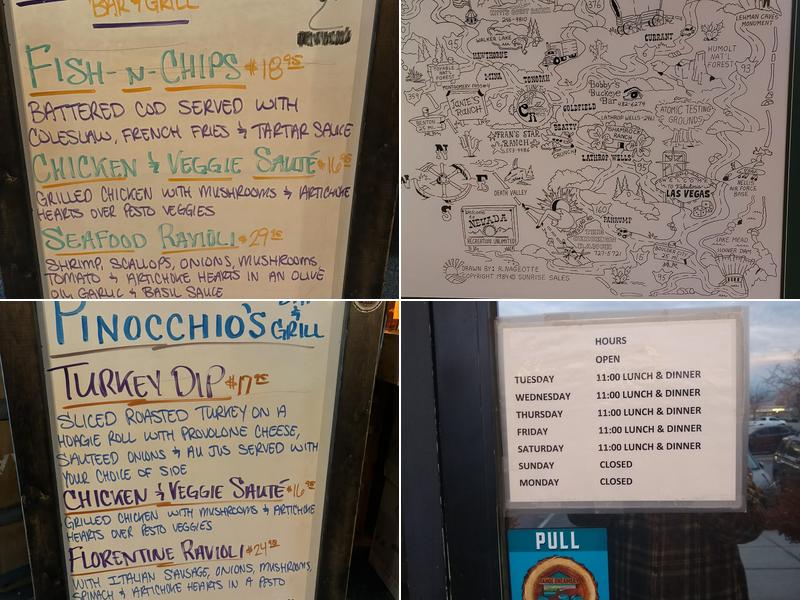 BAR & GRILL
FISH-N-CHIPS $18.95
BATTERED COD SERVED WITH
COLESLAW, FRENCH FRIES & TARTAR SAUCE
CHICKEN & VEGGIE SAUTÉ $16.95
GRILLED CHICKEN WITH MUSHROOMS & ARTICHOKE
HEARTS OVER PESTO VEGGIES
SEAFOOD RAVIOLI $29.95
SHRIMP, SCALLOPS, ONIONS, MUSHROOMS
TOMATO & ARTICHOKE HEARTS IN AN OLIVE
OIL GARLIC & BASIL SAUCE
246-9810
WALKER LAKE
HAWTHORNE
95
376
CURRANT
LEHMAN CAVES
MONUMENT
HUMOLT
NAT'L
FOREST
93
MINA
TONOPAH
MONTGOMERY PASS
359
JANIE'S
RANCH
Bobby's
Buckeye
Bar
482-6279
GOLDFIELD
ATOMIC TESTING
GROUNDS
BENTON
25 MI.
FRAN'S STAR
RANCH
553-9986
BEATTY
SHAMROCK
RANCH
LATHROP WELLS
95
DEATH VALLEY
TO Fabulous
LAS VEGAS
NELLIS
AIR FORCE
BASE
Welcome to
NEVADA
RECREATION UNLIMITED
160
PAHRUMP
THE
CHICKEN
RANCH
727-5721
BOULDER CITY
25 MI.
LAKE MEAD
HOOVER DAM
95
DRAWN BY: R. NAGEOTTE
COPYRIGHT 1984 © SUNRISE SALES
PINOCCHIO'S BAR & GRILL
TURKEY DIP $17.95
SLICED ROASTED TURKEY ON A
HOAGIE ROLL WITH PROVOLONE CHEESE,
SAUTEED ONIONS & AU JUS SERVED WITH
YOUR CHOICE OF SIDE
CHICKEN & VEGGIE SAUTÉ $16.95
GRILLED CHICKEN WITH MUSHROOMS & ARTICHOKE
HEARTS OVER PESTO VEGGIES
FLORENTINE RAVIOLI $24.95
WITH ITALIAN SAUSAGE, ONIONS, MUSHROOMS,
SPINACH & ARTICHOKE HEARTS IN A PESTO
HOURS
OPEN
TUESDAY 11:00 LUNCH & DINNER
WEDNESDAY 11:00 LUNCH & DINNER
THURSDAY 11:00 LUNCH & DINNER
FRIDAY 11:00 LUNCH & DINNER
SATURDAY 11:00 LUNCH & DINNER
SUNDAY CLOSED
MONDAY CLOSED
PULL